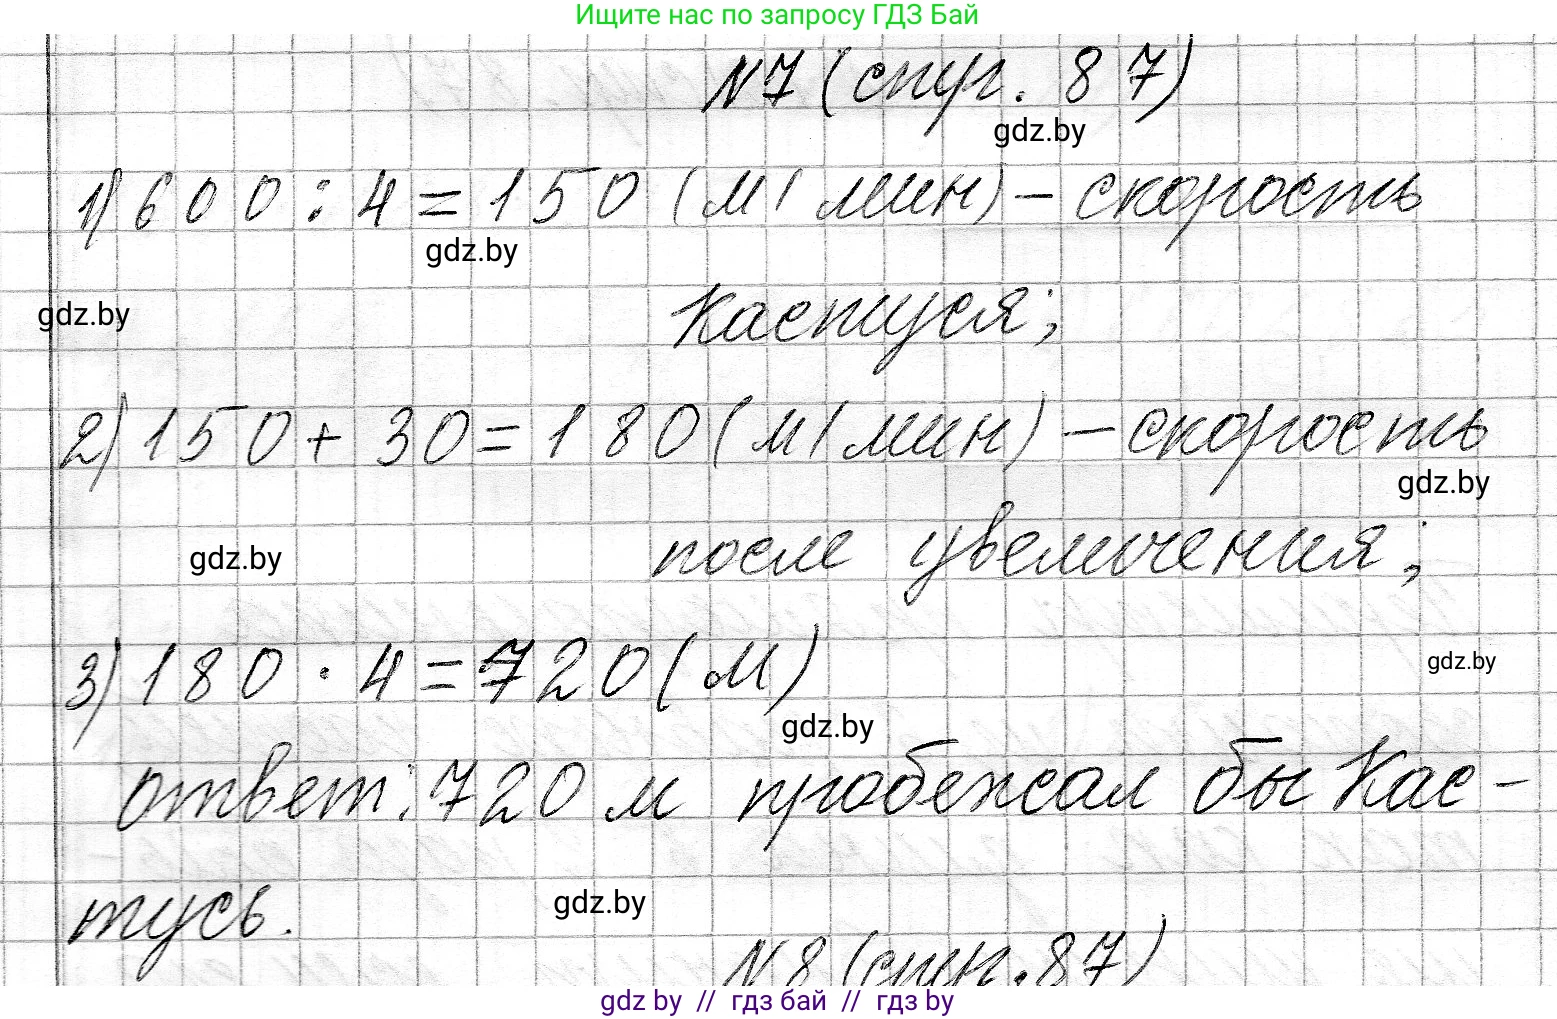 Ищите нас по запросу ГДЗ Бай
№7 (стр. 87)
gdz.by
1) 600 : 4 = 150 (м/мин) – скорость
gdz.by
gdz.by
Кастуся;
2) 150 + 30 = 180 (м/мин) – скорость
gdz.by
после увеличения;
gdz.by
3) 180 · 4 = 720 (м)
gdz.by
gdz.by
Ответ: 720 м пробежал бы Кас-
тусь.
gdz.by
№8 (стр. 87)
gdz by // гдз бай // гдз by